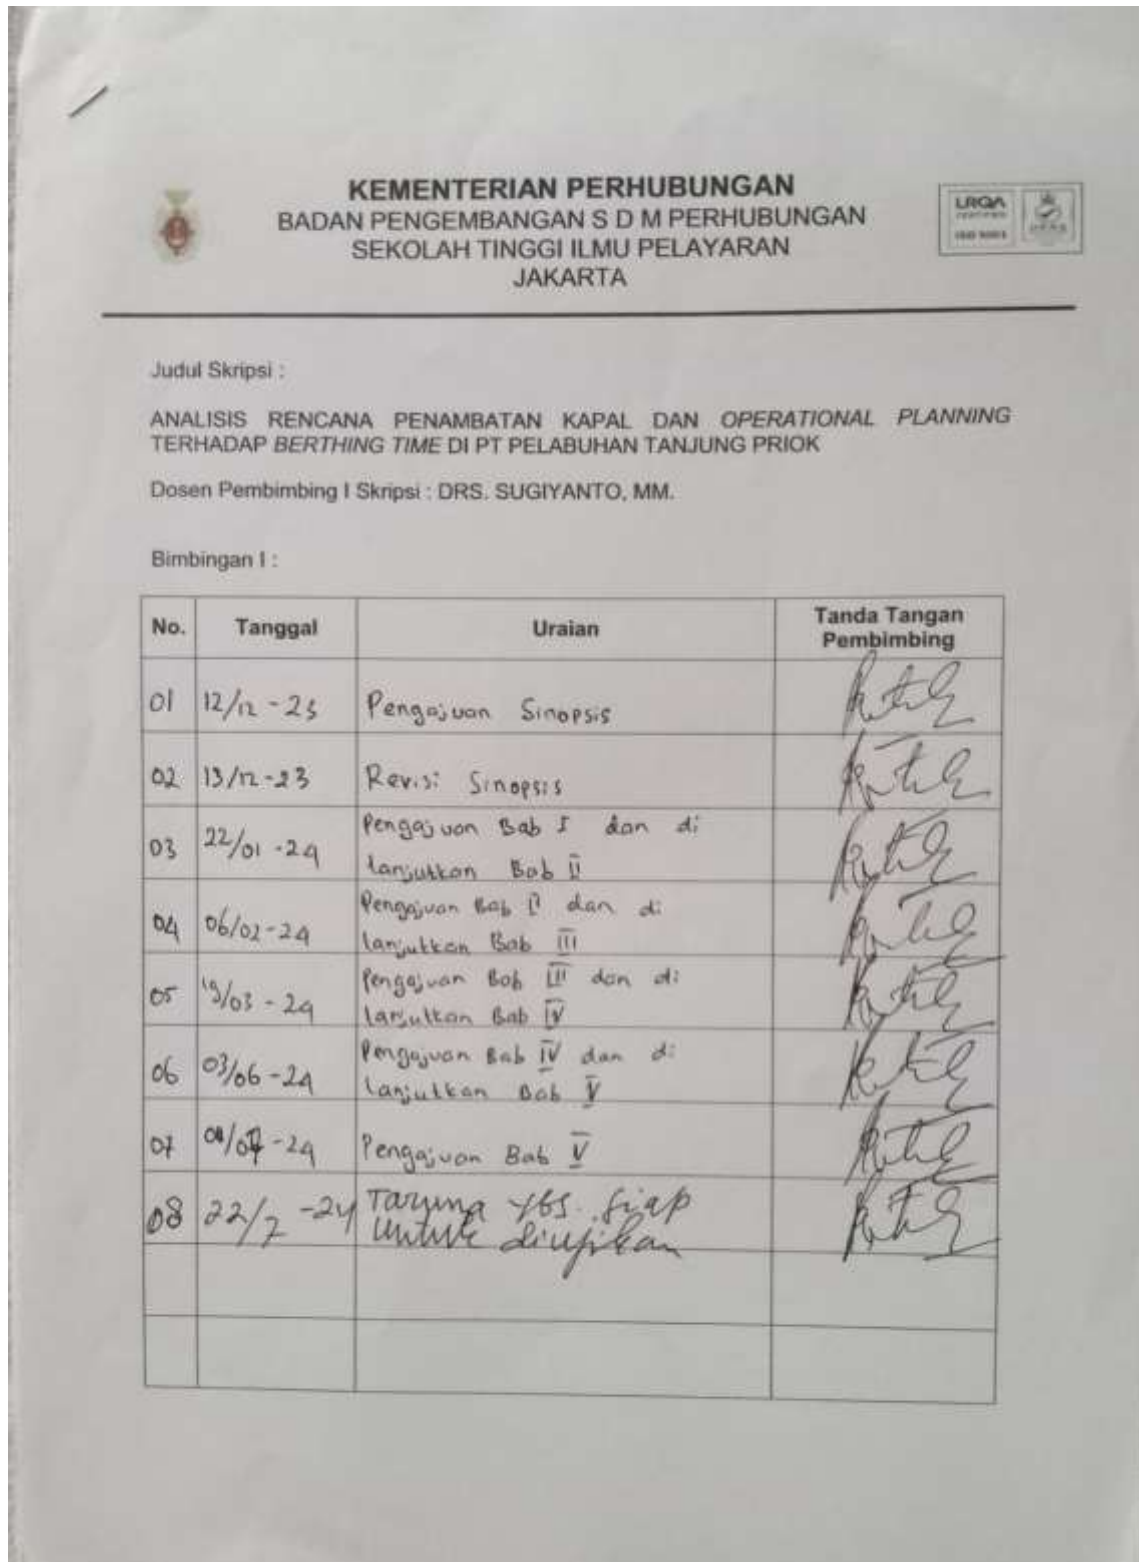 KEMENTERIAN PERHUBUNGAN
BADAN PENGEMBANGAN S D M PERHUBUNGAN
SEKOLAH TINGGI ILMU PELAYARAN
JAKARTA
LRQA
CERTIFIED
ISO 9001
UKAS
Judul Skripsi :
ANALISIS RENCANA PENAMBATAN KAPAL DAN OPERATIONAL PLANNING
TERHADAP BERTHING TIME DI PT PELABUHAN TANJUNG PRIOK
Dosen Pembimbing I Skripsi : DRS. SUGIYANTO, MM.
Bimbingan I :
No. Tanggal Uraian Tanda Tangan
Pembimbing
01 12/12 - 23 Pengajuan Sinopsis
02 13/12 - 23 Revisi Sinopsis
03 22/01 - 24 Pengajuan Bab I dan di
lanjutkan Bab II
04 06/02 - 24 Pengajuan Bab II dan di
lanjutkan Bab III
05 19/03 - 24 Pengajuan Bab III dan di
lanjutkan Bab IV
06 03/06 - 24 Pengajuan Bab IV dan di
lanjutkan Bab V
07 - 24 Pengajuan Bab V
08 22/7 - 24 Taruna ybs. siap
untuk diujikan